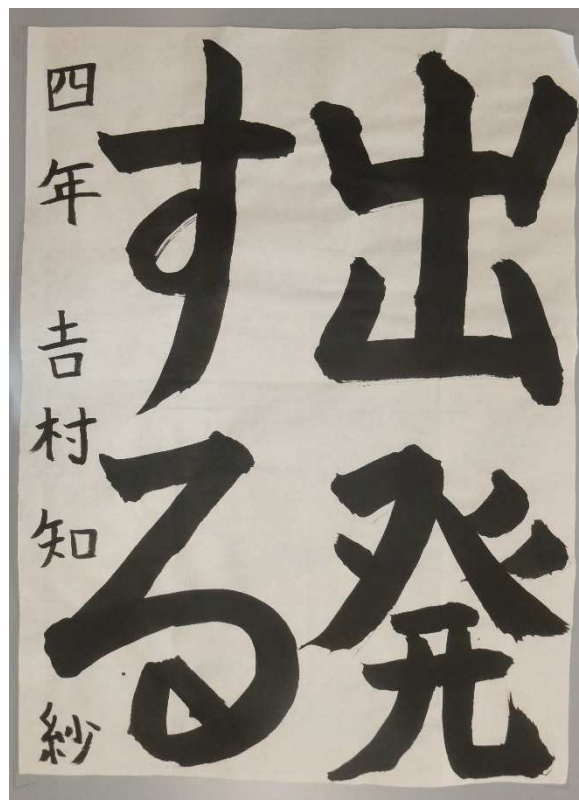 出発
する
四年 𠮷村知紗